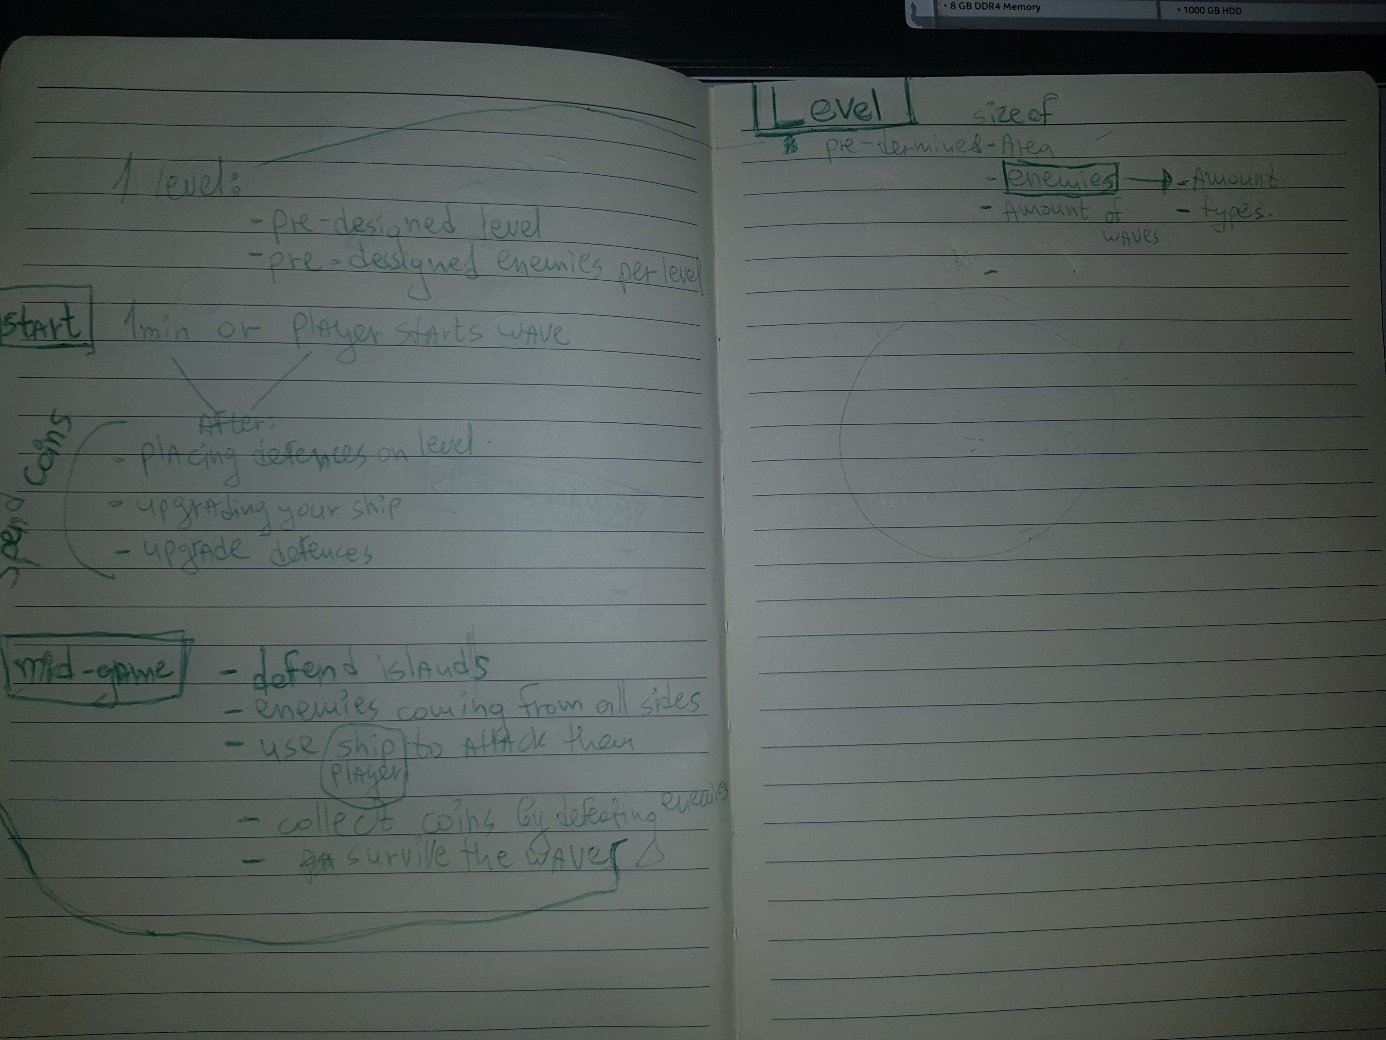 • 8 GB DDR4 Memory
• 1000 GB HDD
1 level:
- pre-designed level
- pre-dessigned enemies per level
start
1min or player starts wave
After:
- placing defences on level
- upgrading your ship
- upgrade defences
spend coins
mid-game
- defend islands
- enemies coming from all sides
- use ship to attack them
player
- collect coins by defeating enemies
- survive the waves
Level
size of
pre-dermined-Area
- enemies → - Amount
- Amount of waves
- types.
-